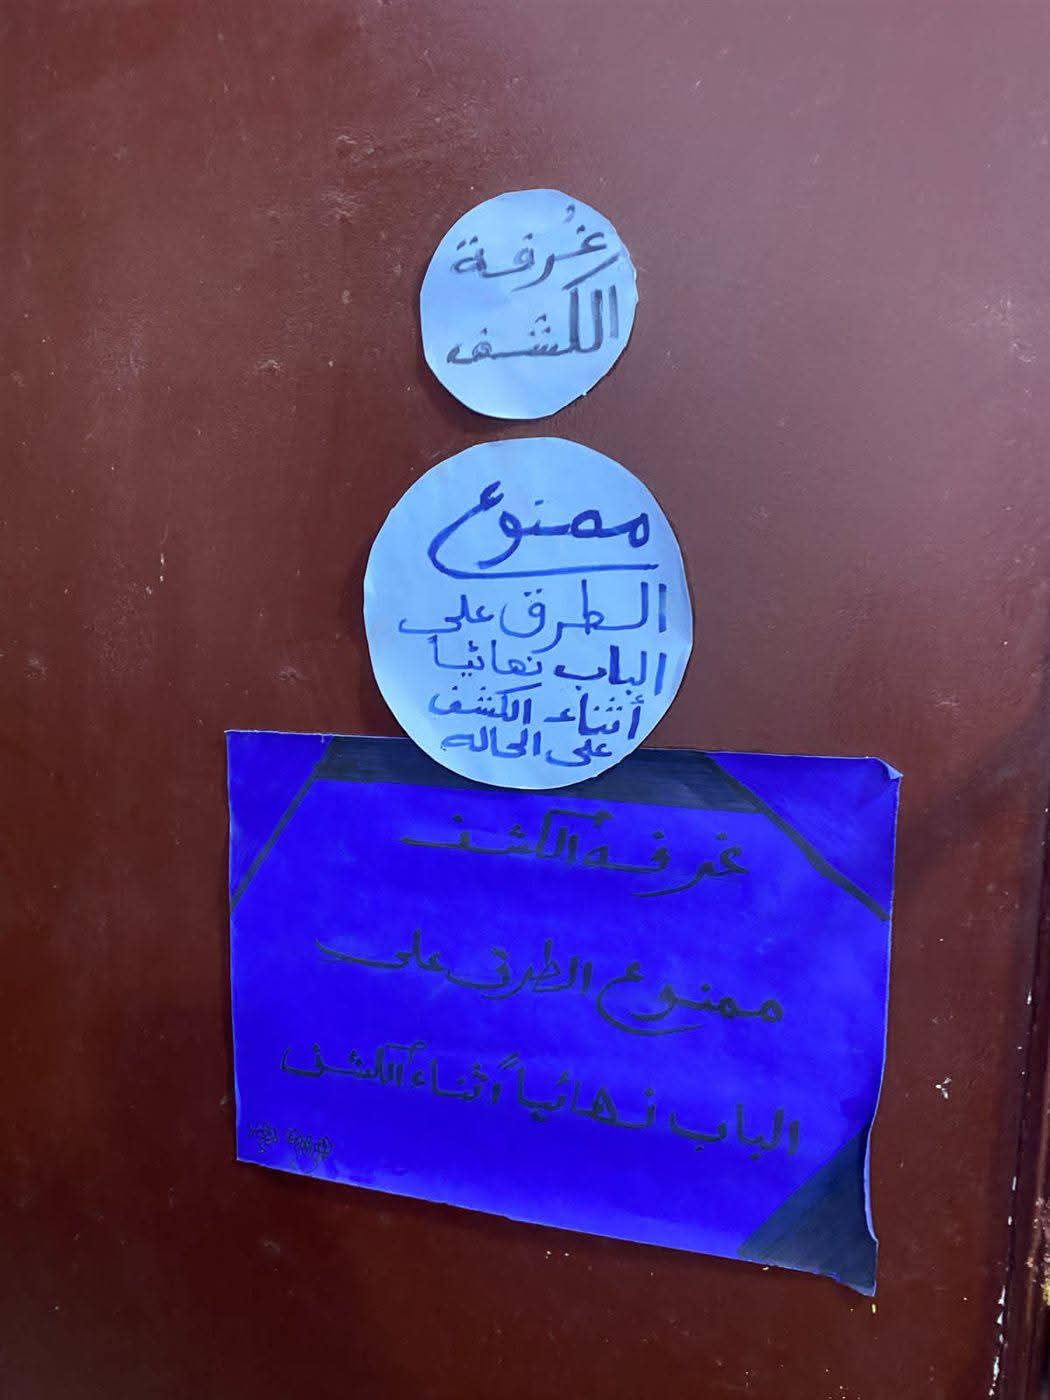 غُرفة
الكشف
ممنوع
الطرق على
الباب نهائياً
أثناء الكشف
على الحاله
غرفه الكشف
ممنوع الطرق على
الباب نهائياً اثناء الكشف